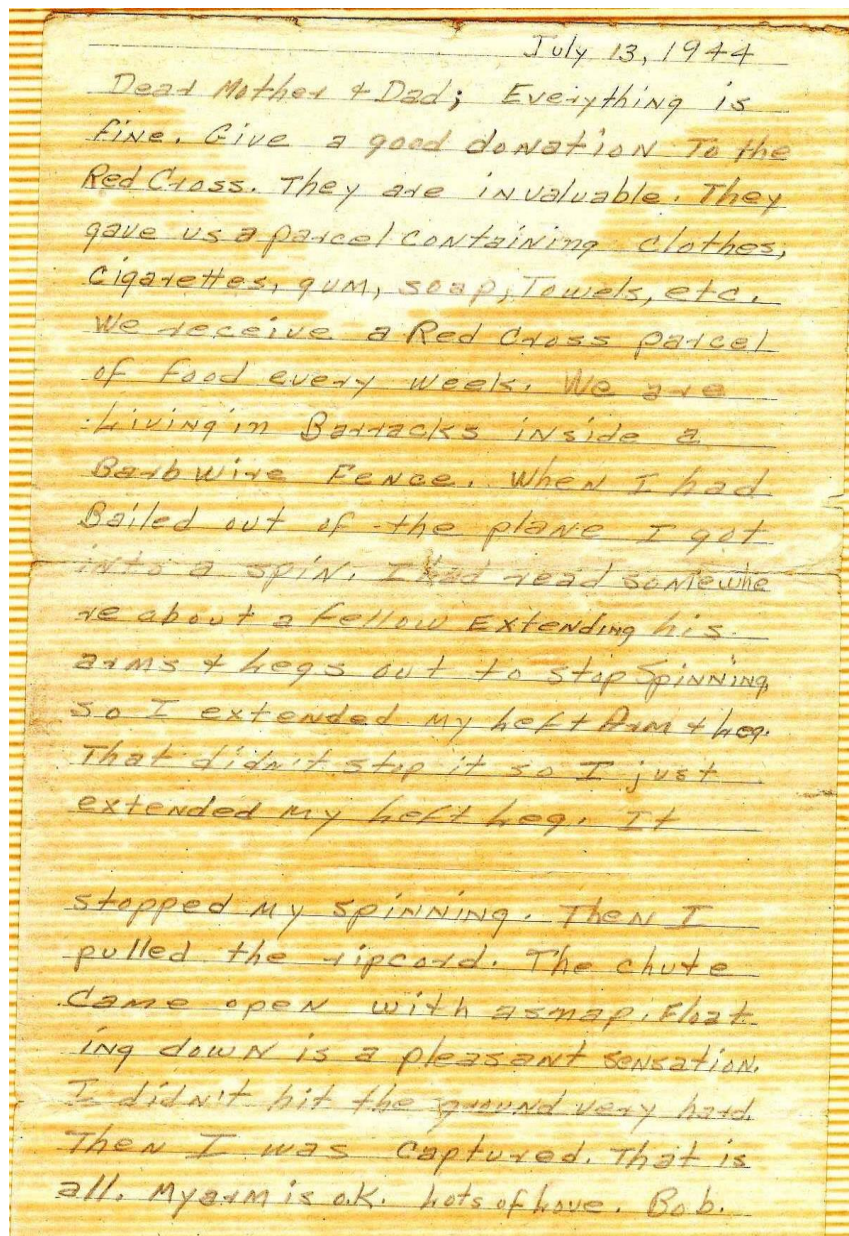 July 13, 1944
Dear Mother & Dad; Everything is
fine. Give a good donation To the
Red Cross. They are invaluable. They
gave us a parcel containing clothes,
cigarettes, gum, soap, Towels, etc.
We receive a Red Cross parcel
of food every week. We are
Living in Barracks inside a
Barbwire Fence. When I had
Bailed out of the plane I got
into a spin. I had read somewhe
re about a fellow Extending his
arms & Legs out to stop Spinning
so I extended my Left Arm & Leg.
That didn't stop it so I just
extended my Left Leg. It
stopped my spinning. Then I
pulled the ripcord. The chute
Came open with a snap. Float
ing down is a pleasant sensation.
I didn't hit the ground very hard.
Then I was captured. That is
all. My arm is o.K. Lots of Love. Bob.